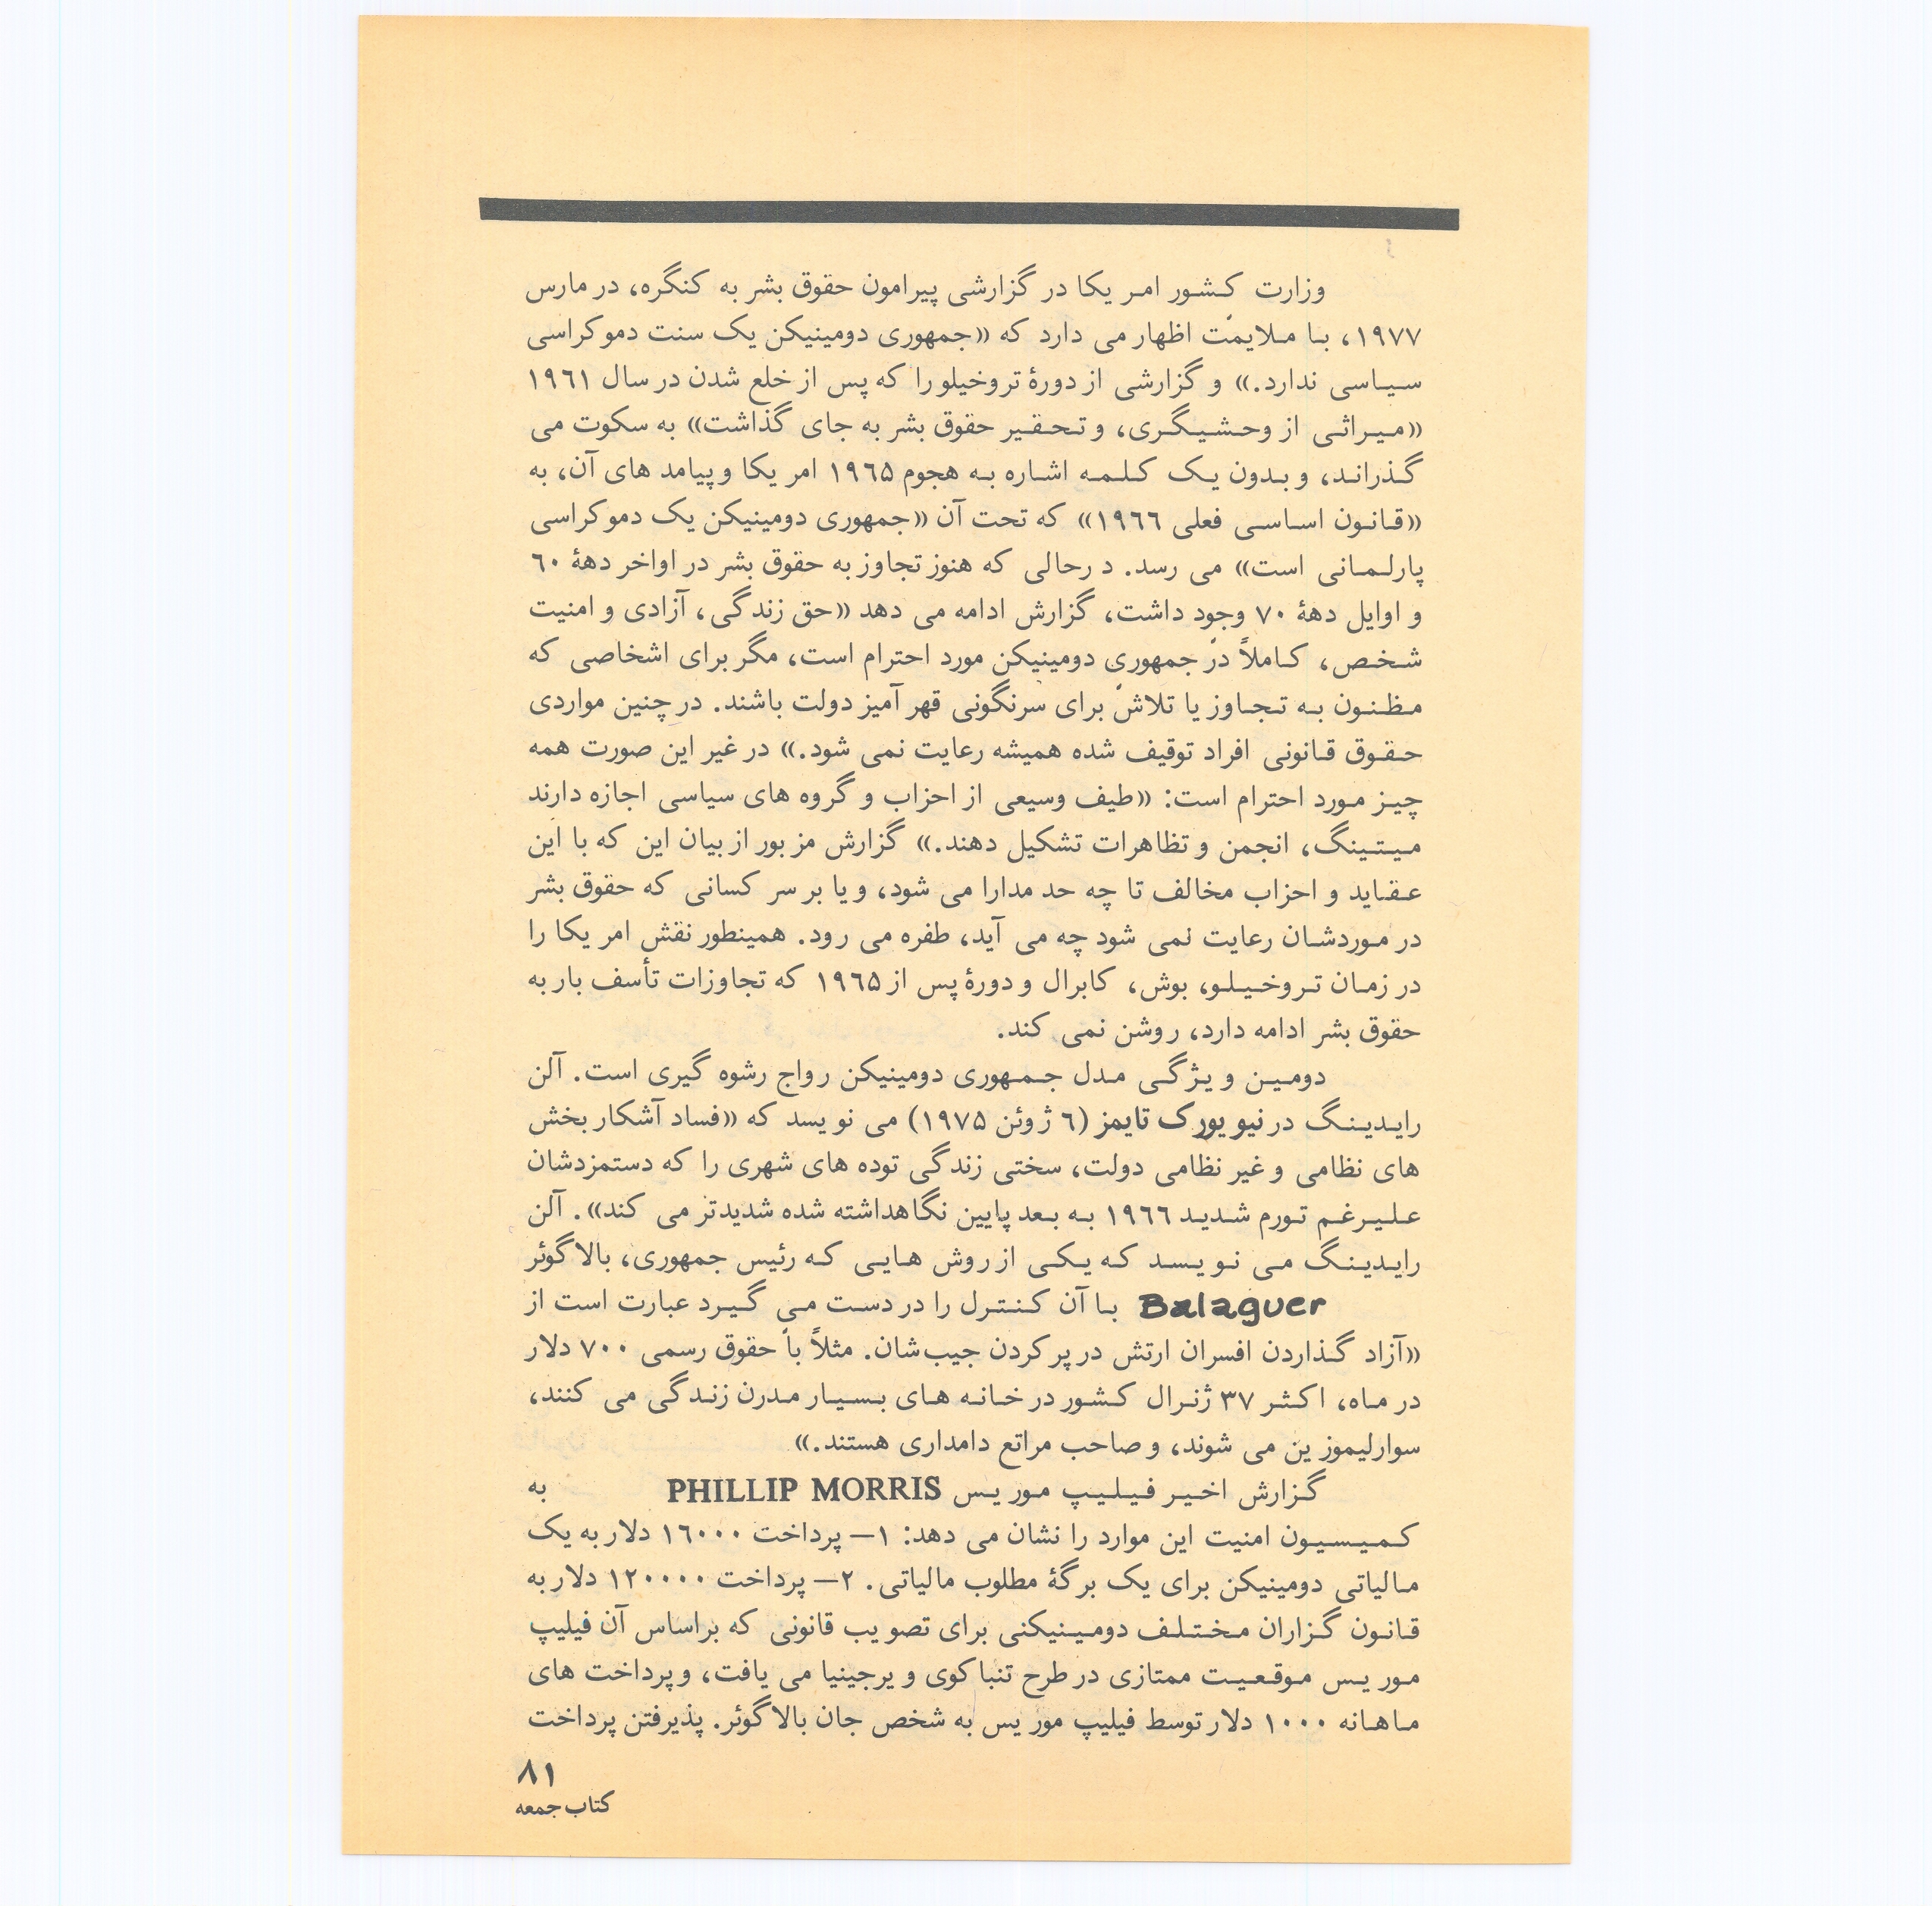 وزارت کشور امریکا در گزارشی پیرامون حقوق بشر به کنگره، در مارس
۱۹۷۷، با ملایمت اظهار می دارد که «جمهوری دومینیکن یک سنت دموکراسی
سیاسی ندارد.» و گزارشی از دورهٔ تروخیلو را که پس از خلع شدن در سال ۱۹۶۱
«میراثی از وحشیگری، و تحقیر حقوق بشر به جای گذاشت» به سکوت می
گذراند، و بدون یک کلمه اشاره به هجوم ۱۹۶۵ امریکا و پیامد های آن، به
«قانون اساسی فعلی ۱۹۶۶» که تحت آن «جمهوری دومینیکن یک دموکراسی
پارلمانی است» می رسد. د رحالی که هنوز تجاوز به حقوق بشر در اواخر دههٔ ۶۰
و اوایل دههٔ ۷۰ وجود داشت، گزارش ادامه می دهد «حق زندگی، آزادی و امنیت
شخص، کاملاً در جمهوری دومینیکن مورد احترام است، مگر برای اشخاصی که
مظنون به تجاوز یا تلاش برای سرنگونی قهر آمیز دولت باشند. در چنین مواردی
حقوق قانونی افراد توقیف شده همیشه رعایت نمی شود.» در غیر این صورت همه
چیز مورد احترام است: «طیف وسیعی از احزاب و گروه های سیاسی اجازه دارند
میتینگ، انجمن و تظاهرات تشکیل دهند.» گزارش مزبور از بیان این که با این
عقاید و احزاب مخالف تا چه حد مدارا می شود، و یا بر سر کسانی که حقوق بشر
در موردشان رعایت نمی شود چه می آید، طفره می رود. همینطور نقش امریکا را
در زمان تروخیلو، بوش، کابرال و دورهٔ پس از ۱۹۶۵ که تجاوزات تأسف بار به
حقوق بشر ادامه دارد، روشن نمی کند.
دومین ویژگی مدل جمهوری دومینیکن رواج رشوه گیری است. آلن
رایدینگ در نیویورک تایمز (۶ ژوئن ۱۹۷۵) می نویسد که «فساد آشکار بخش
های نظامی و غیر نظامی دولت، سختی زندگی توده های شهری را که دستمزدشان
علیرغم تورم شدید ۱۹۶۶ به بعد پایین نگاهداشته شده شدیدتر می کند». آلن
رایدینگ می نویسد که یکی از روش هایی که رئیس جمهوری، بالاگوئر
Balaguer با آن کنترل را در دست می گیرد عبارت است از
«آزاد گذاردن افسران ارتش در پر کردن جیب‌شان. مثلاً با حقوق رسمی ۷۰۰ دلار
در ماه، اکثر ۳۷ ژنرال کشور در خانه های بسیار مدرن زندگی می کنند،
سوارلیموزین می شوند، و صاحب مراتع دامداری هستند.»
گزارش اخیر فیلیپ موریس PHILLIP MORRIS به
کمیسیون امنیت این موارد را نشان می دهد: ۱— پرداخت ۱۶۰۰۰ دلار به یک
مالیاتی دومینیکن برای یک برگهٔ مطلوب مالیاتی. ۲— پرداخت ۱۲۰۰۰۰ دلار به
قانون گزاران مختلف دومینیکنی برای تصویب قانونی که براساس آن فیلیپ
موریس موقعیت ممتازی در طرح تنباکوی ویرجینیا می یافت، و پرداخت های
ماهانه ۱۰۰۰ دلار توسط فیلیپ موریس به شخص جان بالاگوئر. پذیرفتن پرداخت
۸۱
کتاب جمعه